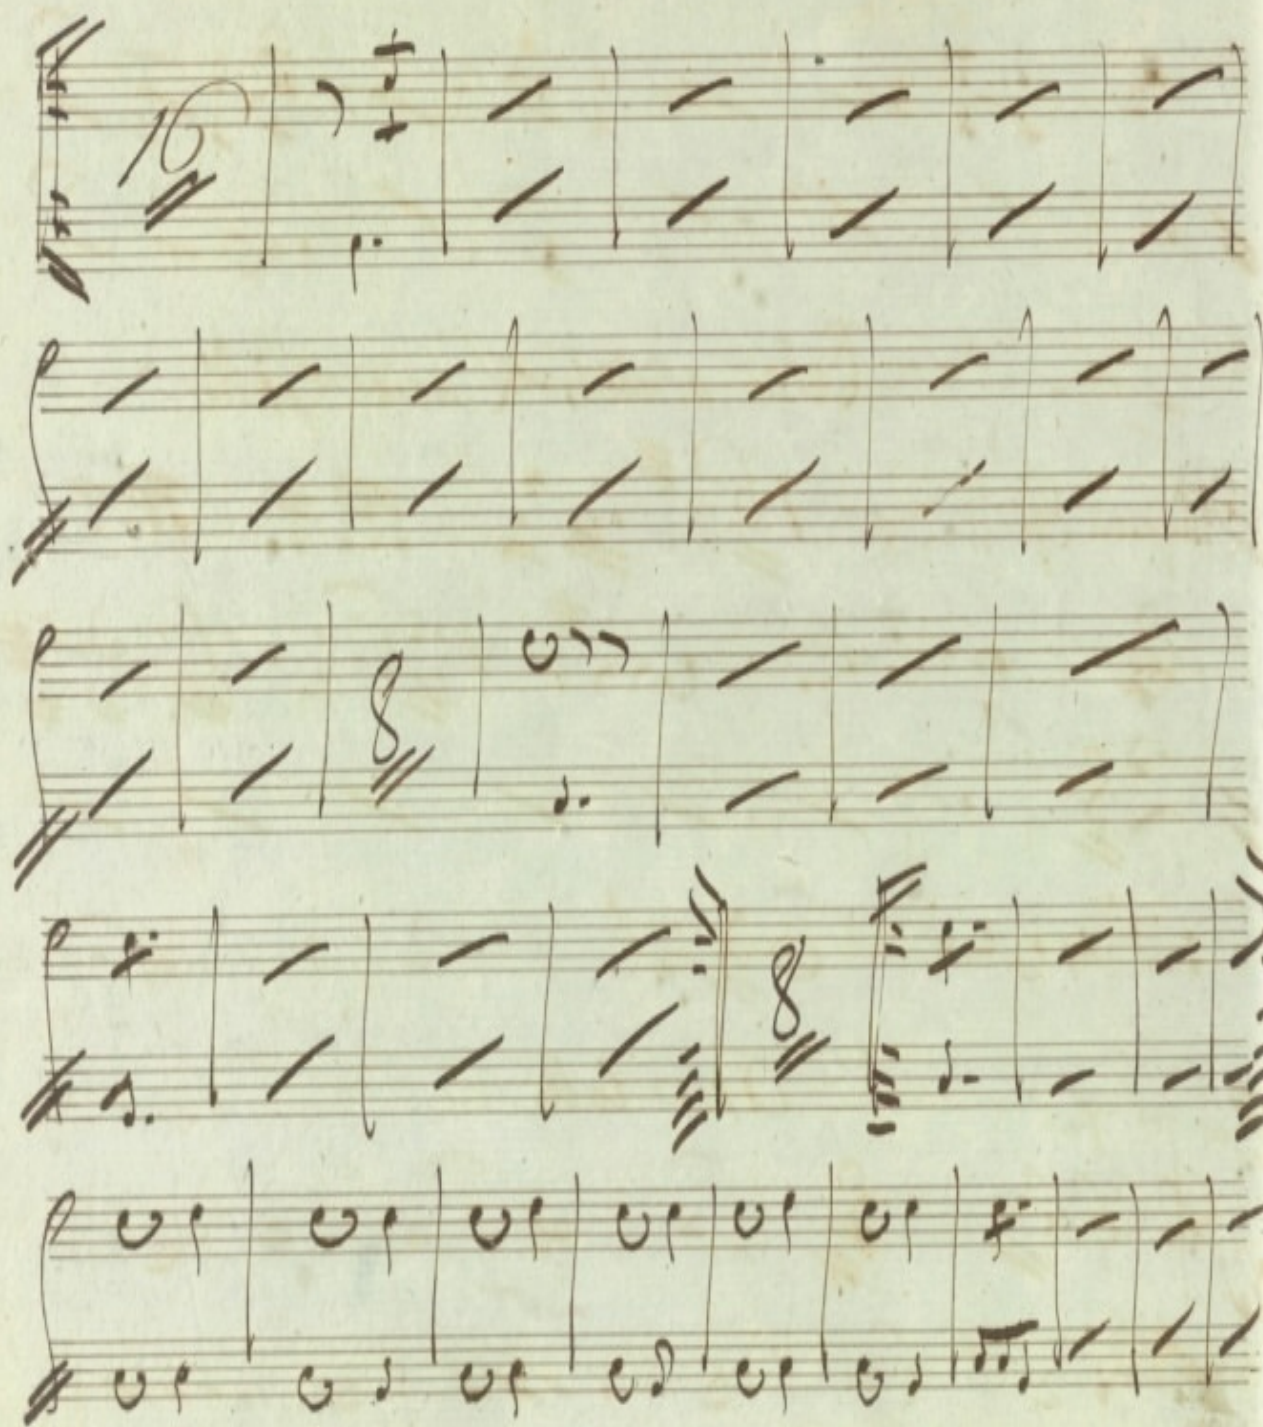 16
8
8